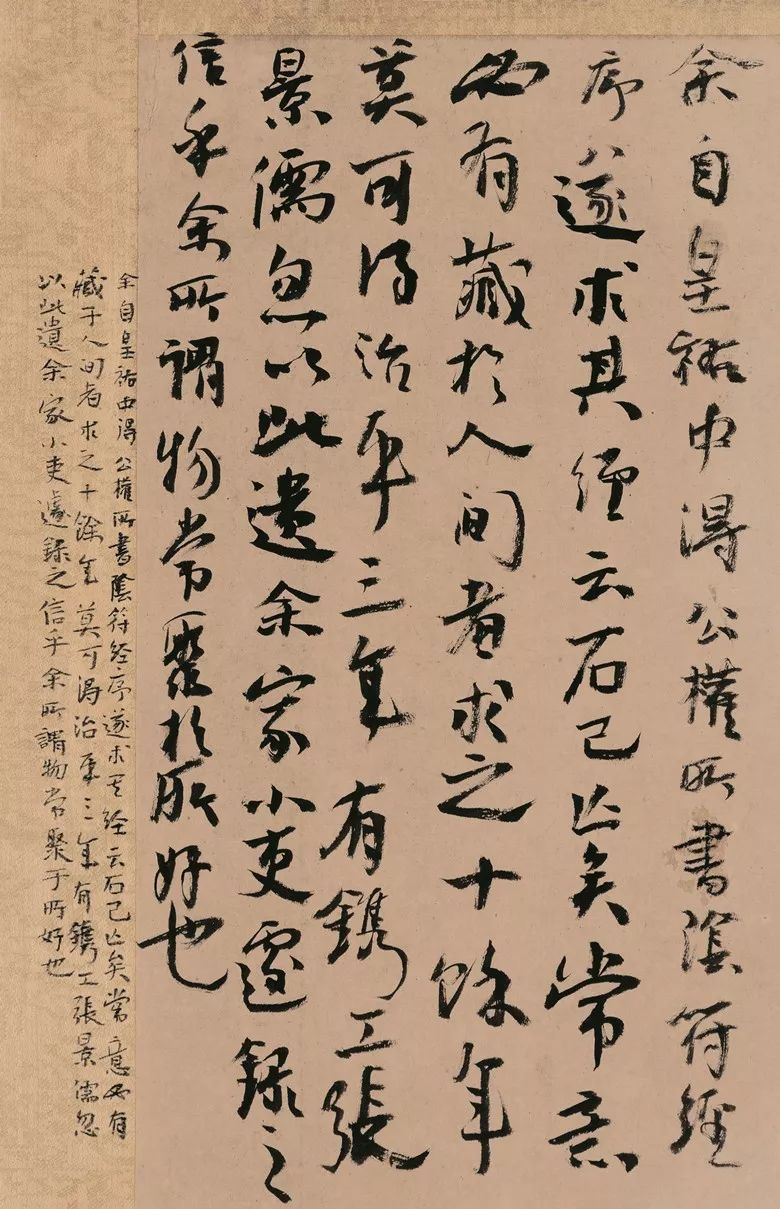 余自皇祐中得公權所書陰符經
序遂求其經云石已亡矣常意
必有藏於人间者求之十餘年
莫可得治平三年有鐫工張
景儒忽以此遺余家小吏遽録之
信乎余所謂物常聚於所好也
余自皇祐中得公權所書陰符经序遂求其经云石已亡矣常意必有
藏于人间者求之十餘年莫可得治平三年有鐫工張景儒忽
以此遺余家小吏遽録之信乎余所謂物常聚于所好也